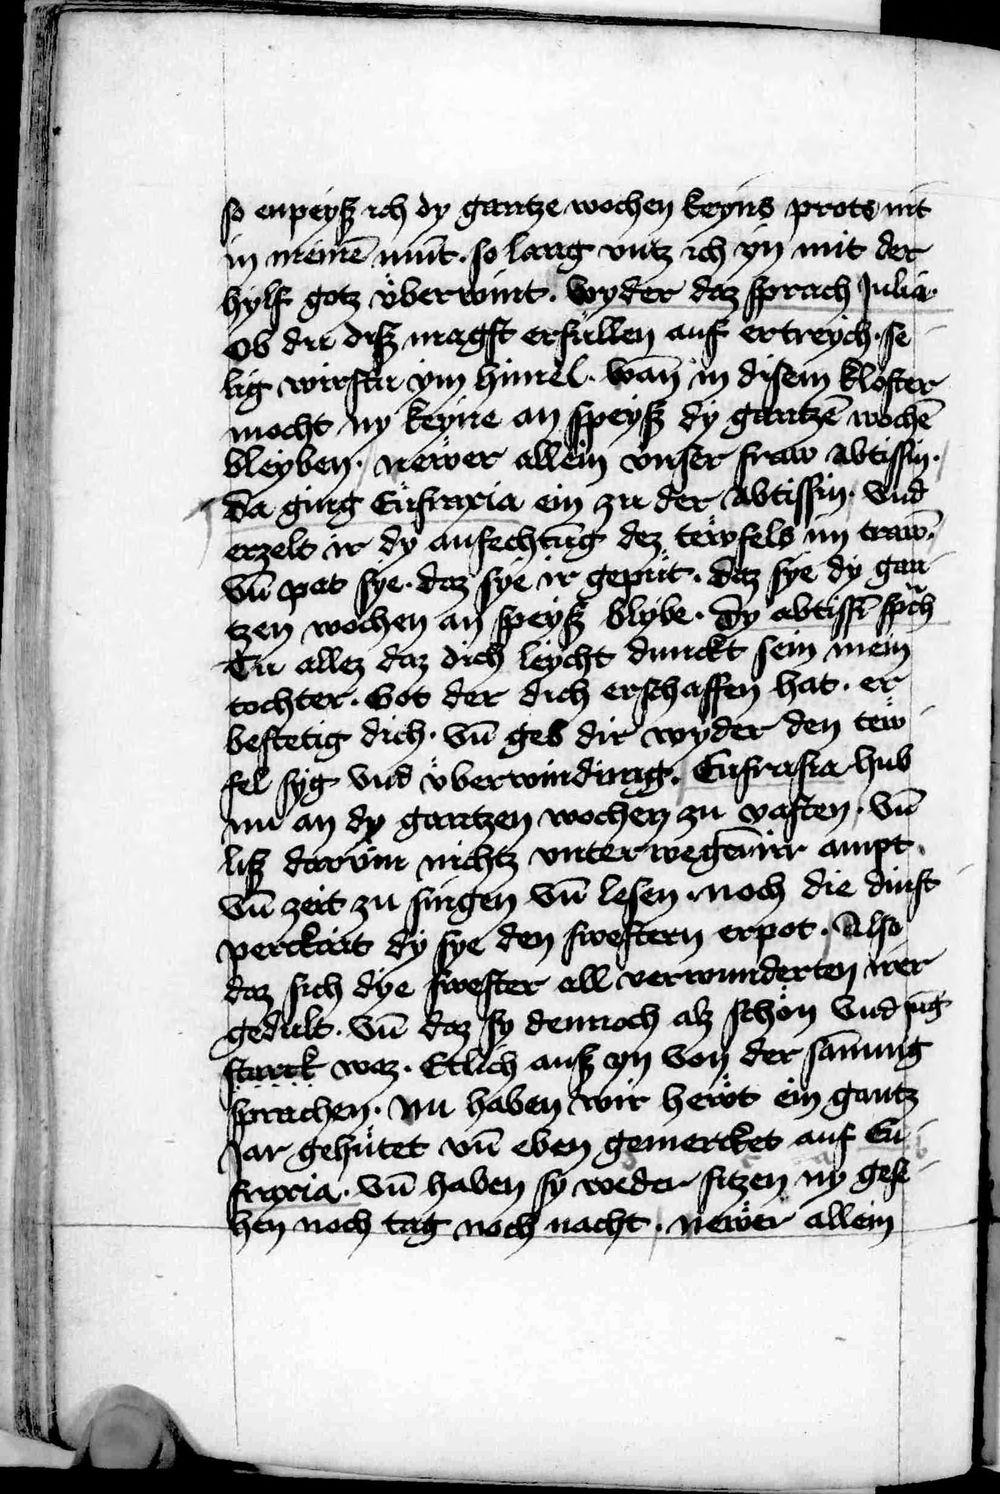 so enpeyß ich dy gantze wochen keyns prots nit
in meinē mūt. so lang vntz ich yn mit der
hylf gotz v̈berwint. Wyder daz sprach Julia.
Ob du diß magst erfüllen auf ertreych. se
lig wirstu ym himel. Wan̄ in disem kloster
mocht ny keyne an speyß dy gantzē wochē
bleyben. newer allein vnser fraw Abtissin.
Da ging Eufraxia ein zu der Abtissin. Vnd
erzelt ir dy anfechtūg dez tewfels im traw̄.
Vn̄ pat sye. daz sye ir geput. daz sye dy gan
tzen wochen an speyß blybe. Dy abtissī sp̃ch
Tu allez daz dich leycht dunckt sein mein
tochter. Got der dich erschaffen hat. er
bestetig dich. Vn̄ geb dir wyder den tew
fel syg vnd v̈berwindung. Eufrasia hub
nu an dy gantzen wochen zu vasten. Vn̄
liß darüm nichtz vnterwegen̄ irr ampt.
Vn̄ zeit zu singen vn̄ lesen. noch die dinst
perckait dy sye den swestern erpot. Also
daz sich dye swester all verwunderten irer
gedult. Vn̄ daz sy dennoch alz schön vnd iūg
starck waz. Etlich auß yn von der samūng
sprachen. Nu haben wir hewt ein gantz
Jar gehütet vn̄ eben gemercket auf Eu
fraxia. Vn̄ haben sy weder sitzen ny gese
hen noch tag noch nacht. newer allein